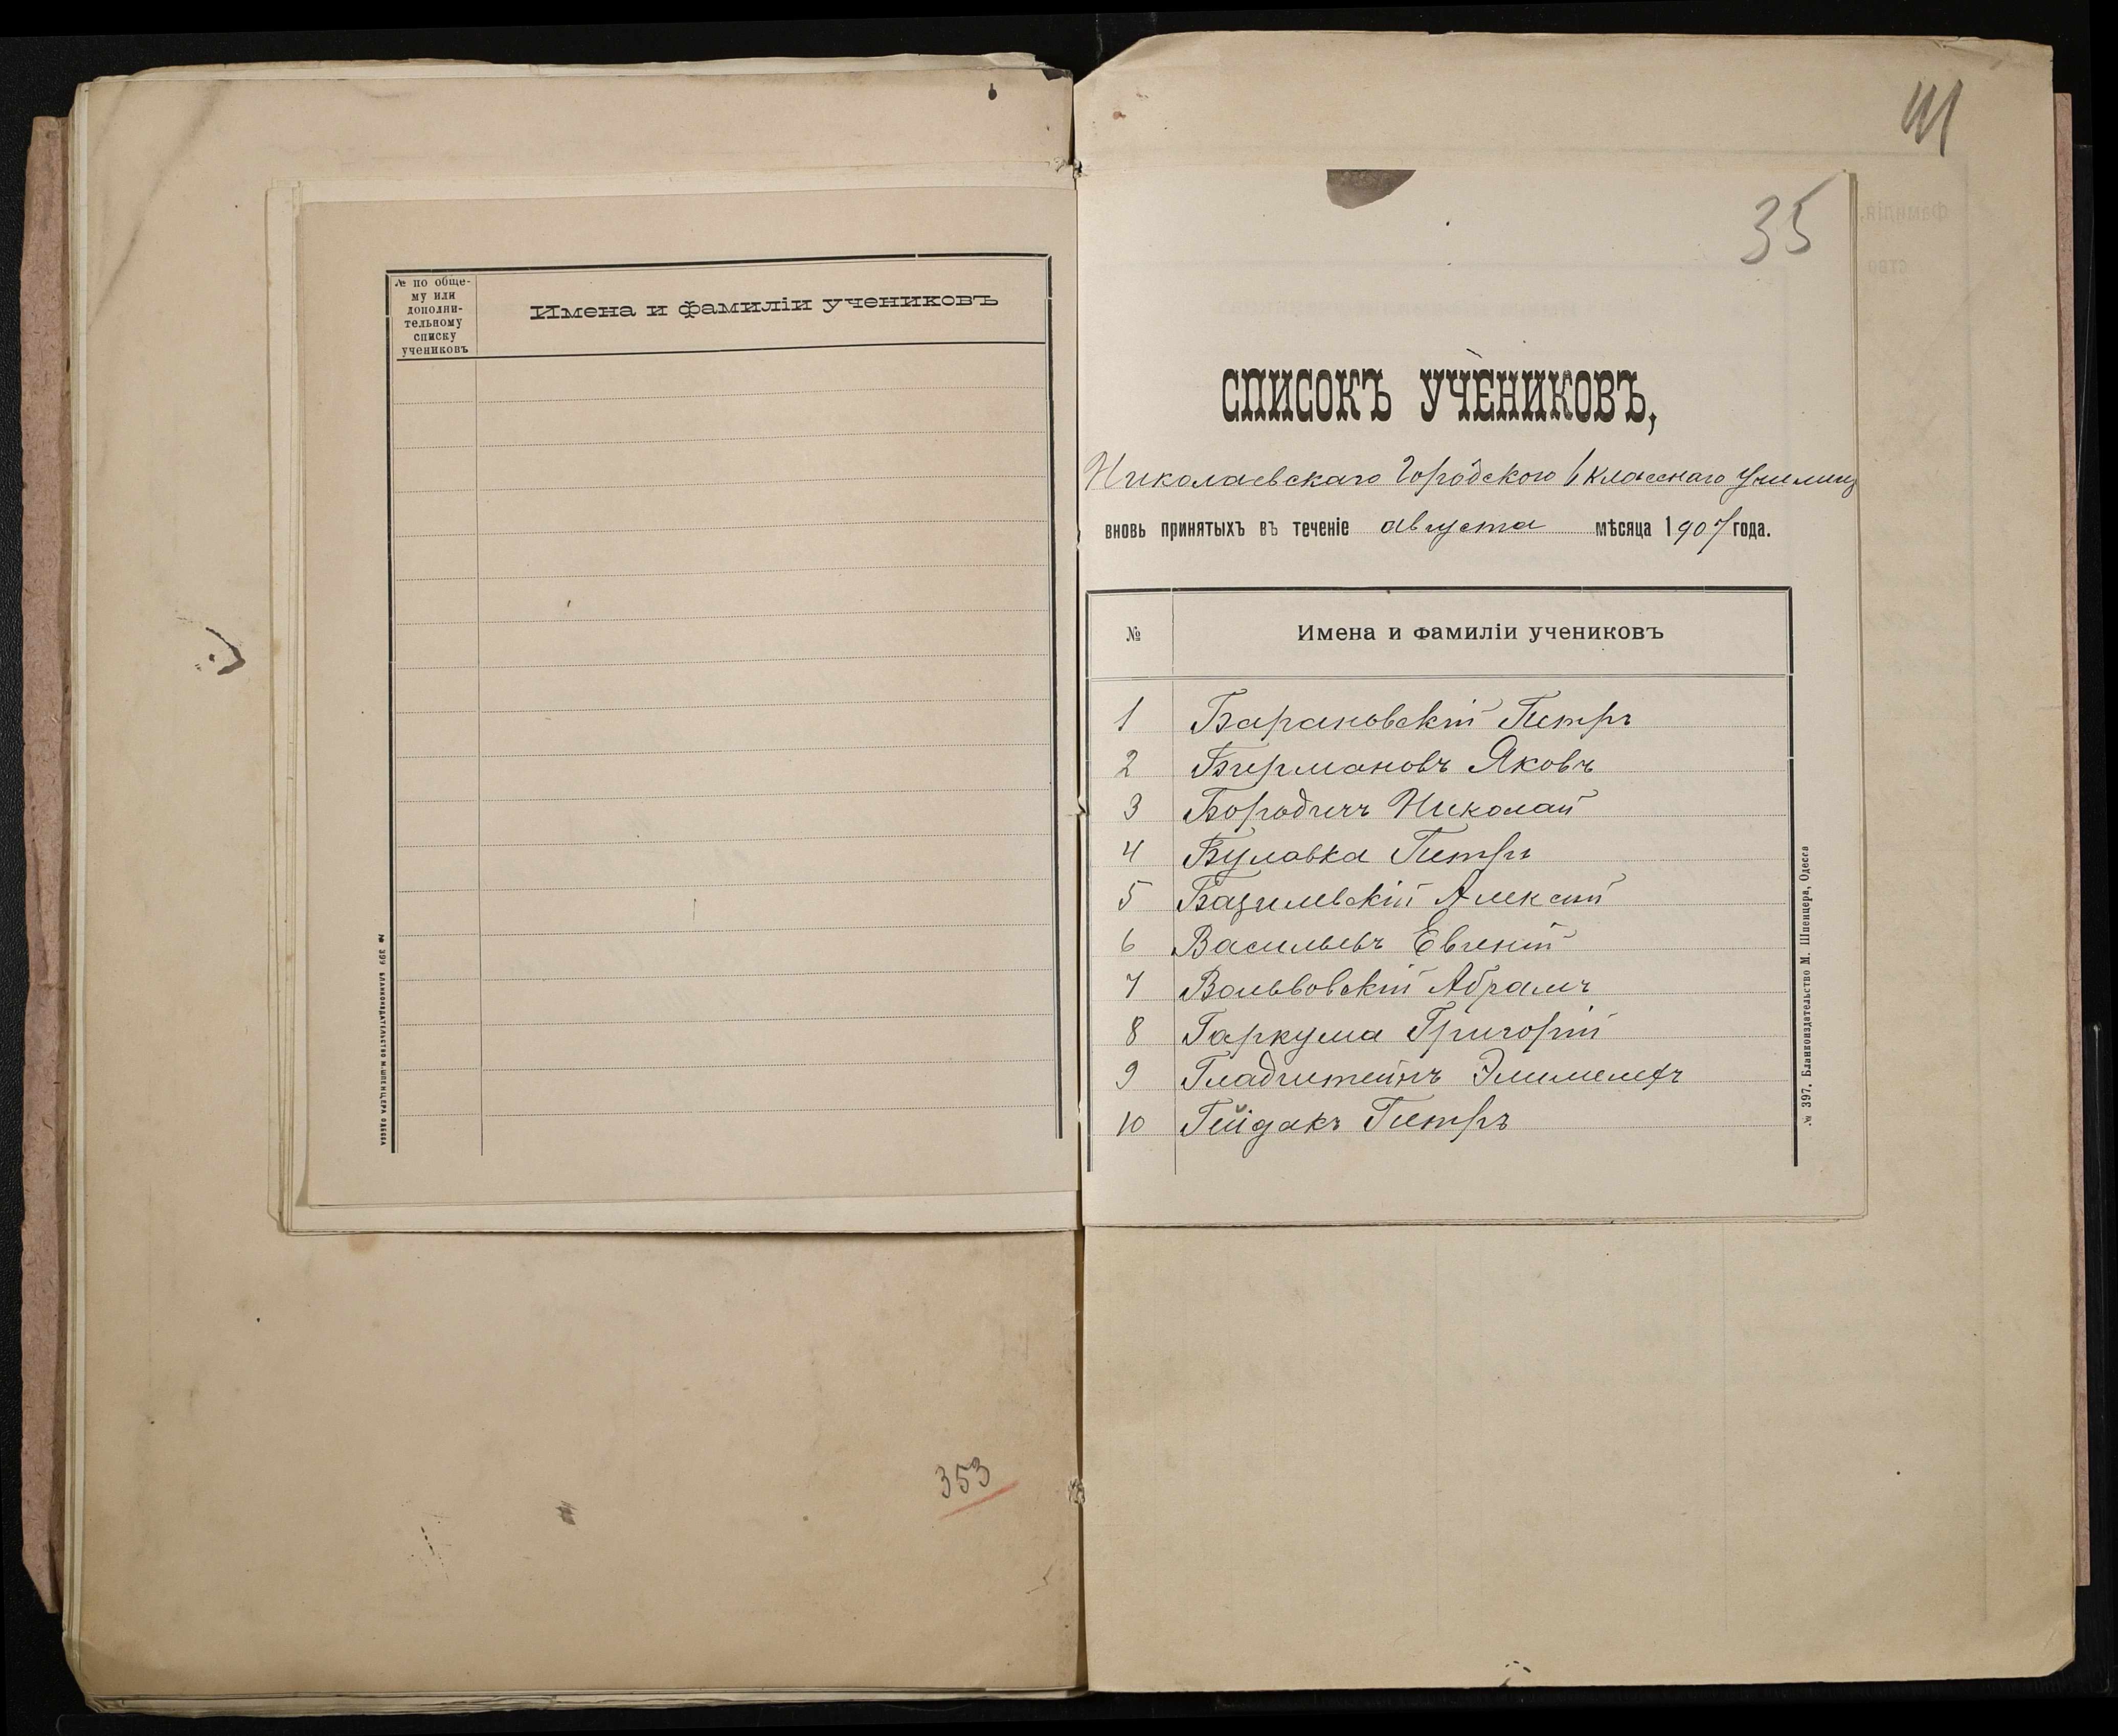 № по обще-
му или
дополни-
тельному
списку
учениковъ
Имена и фамиліи учениковъ
№ 399 БЛАНКОИЗДАТЕЛЬСТВО М. ШПЕНЦЕРА ОДЕССА
353
35
СПИСОКЪ УЧЕНИКОВЪ,
Николаевскаго Городского 6 класснаго Училищ
вновь принятыхъ въ теченіе августа мѣсяца 1907 года.
№ Имена и фамиліи учениковъ
1 Барановскій Петръ
2 Бермановъ Яковъ
3 Бородичъ Николай
4 Булавка Петръ
5 Базилевскій Алексѣй
6 Васильевъ Евгеній
7 Вольвовскій Абрамъ
8 Гаркуша Григорій
9 Гладштейнъ Элимелехъ
10 Гейдакъ Петръ
№ 397. Бланкоиздательство М. Шпенцера, Одесса
Фамилія,
ство